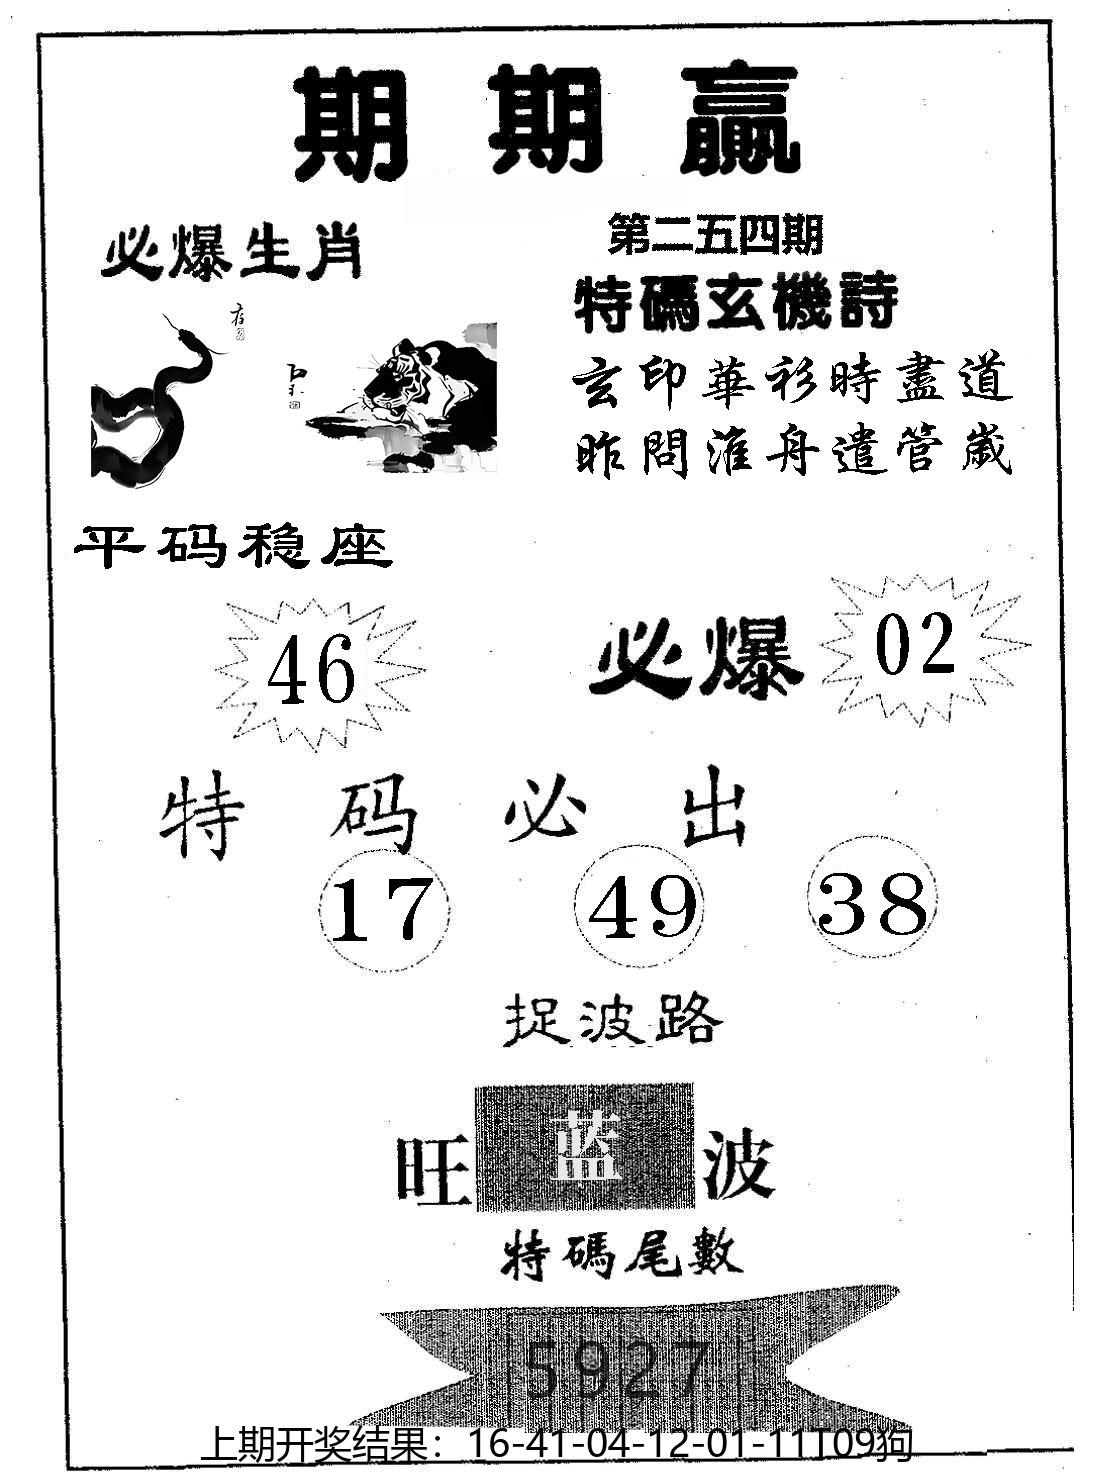 期期贏
必爆生肖
第二五四期
特碼玄機詩
玄印華衫時盡道
昨問淮舟遣管歲
平码稳座
46
必爆 02
特码必出
17 49 38
捉波路
旺 蓝 波
特碼尾數
5927
上期开奖结果：16-41-04-12-01-11T09狗